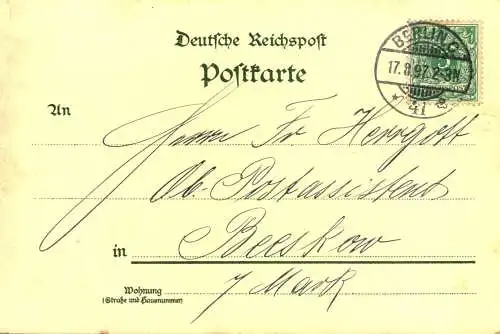 Deutsche Reichspost
Postkarte
BERLIN C.
17.8.97.2-3N.
* 41 *
An
Herrn Fr Herrgott
Ob. Postassistent
in Beeskow
Wohnung
(Straße und Hausnummer)
/ Mark